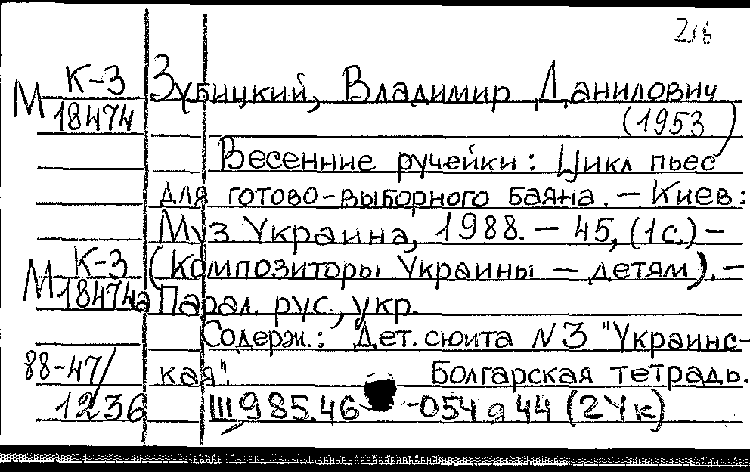 216
К-3 Зубицкий, Владимир Данилович
М 18474 (1953)
Весенние ручейки: Цикл пьес
для готово-выборного баяна. — Киев:
Муз Украина, 1988. — 45, (1с.) —
К-3 (Композиторы Украины — детям). —
М 18474а Парал. рус., укр.
Содерж.: Дет. сюита N3 "Украинс-
88-47/ кая". Болгарская тетрадь.
1236 Щ985.46 -054я44 (2Ук)